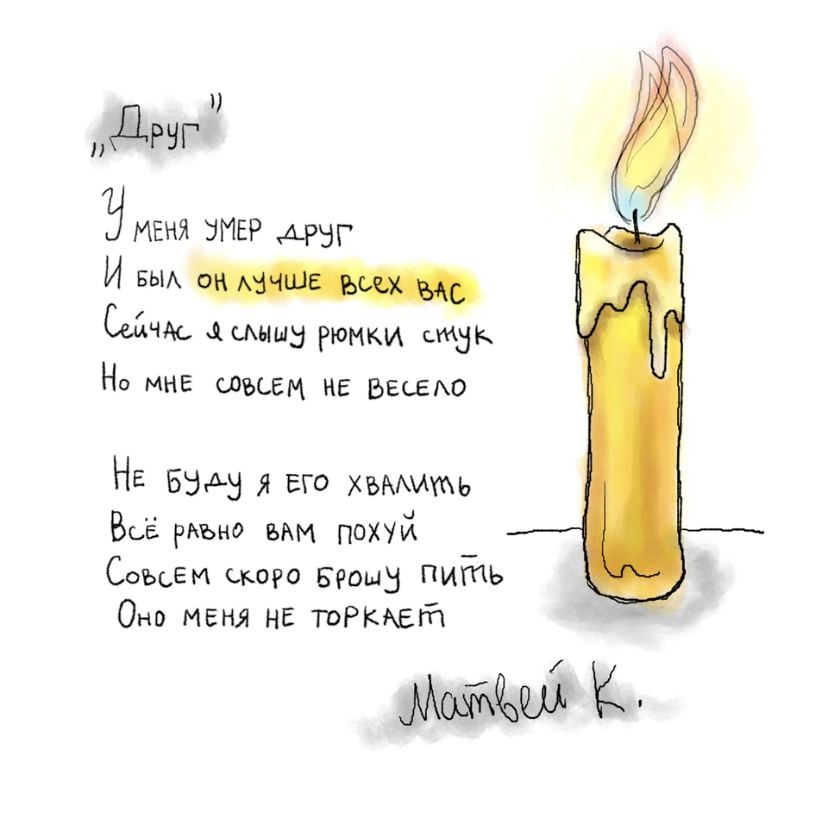 „Друг"
У меня умер друг
И был он лучше всех вас
Сейчас я слышу рюмки стук
Но мне совсем не весело
Не буду я его хвалить
Всё равно вам похуй
Совсем скоро брошу пить
Оно меня не торкает
Матвей К.